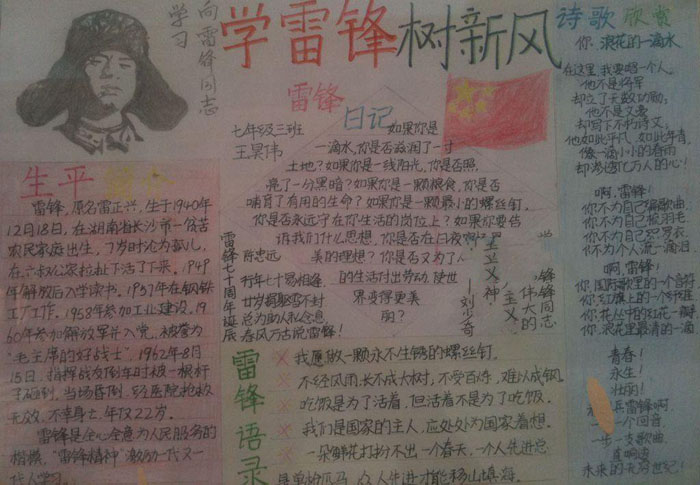 向雷锋同志
学习
学雷锋树新风
生平简介
雷锋,原名雷正兴,生于1940年
12月18日,在湖南省长沙市一贫苦
农民家庭出生,7岁时沦为孤儿,
在六叔公家拉扯下活了下来。1949
年解放后入学读书。1957年在钢铁
工厂工作。1958年参加工业建设。19
60年参加解放军并入党,被誉为
“毛主席的好战士”,1962年8月
15日,指挥战友倒车时被一根杆
子砸到,当场昏倒,经医院抢救
无效,不幸身亡,年仅22岁。
雷锋是全心全意为人民服务的
楷模,“雷锋精神”激励一代又一
代人学习。
雷锋
日记
七年级三班
王昊伟
如果你是
一滴水,你是否滋润了一寸
土地?如果你是一线阳光,你是否照
亮了一分黑暗?如果你是一颗粮食,你是否
哺育了有用的生命?如果你是一颗最小的螺丝钉,
你是否永远守在你生活的岗位上?如果你要告
诉我们什么思想,你是否在日夜
美的理想?你是否又为了
的生活付出劳动,使世
界变得更美
雷锋七十周年诞辰
陈忠远
行年七十易相逢
总为助人私念息
春风万古说雷锋!
主义神
伟大的
锋同志
——刘少奇
雷锋语录
我愿做一颗永不生锈的螺丝钉。
不经风雨,长不成大树,不受百炼,难以成钢。
吃饭是为了活着,但活着不是为了吃饭。
我们是国家的主人,应处处为国家着想。
一朵鲜花打扮不出一个春天,一个人先进总
是单枪匹马,众人先进才能移山填海。
诗歌欣赏
你,浪花的一滴水
在这里,我要唱一个人,
他不是将军
却立了无数功勋;
他不是文豪
却写下不朽诗文;
他如此平凡,如此年青,
像一滴小小的春雨
却渗透亿万人的心!
啊,雷锋!
你不为自己编歌曲,
你不为自己披羽毛
你不为自己罗衣
你不为个人流一滴泪
啊,雷锋!
你,国际歌里的一个音符
你,红旗上的一个纤维
你,花丛中的红花一
你,浪花里最清的一滴
青春!
永生!
壮丽!
兵雷锋啊,
一个回音,
一步一支歌曲,
直响遍
未来的无穷世纪!